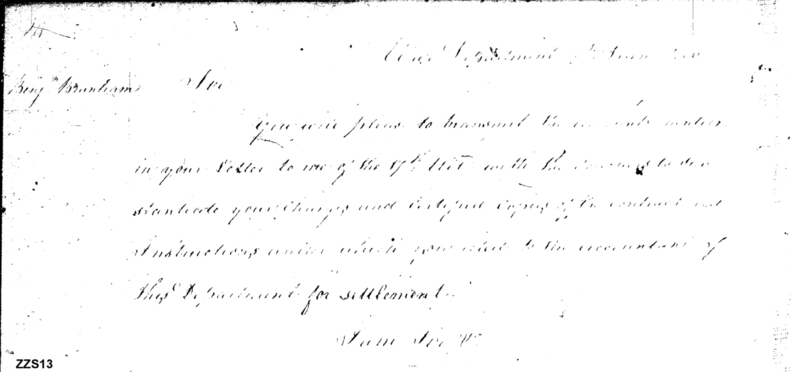 War Department
Benj.n Branham Sir
You will please to transmit the accounts mention
in your Letter to me of the 17th Ult. with the
stantiate your Charges and Certified Copies of the contract and
Instructions under which you acted to the accountant of
this Department for settlement.
I am Sir &c
ZZS13